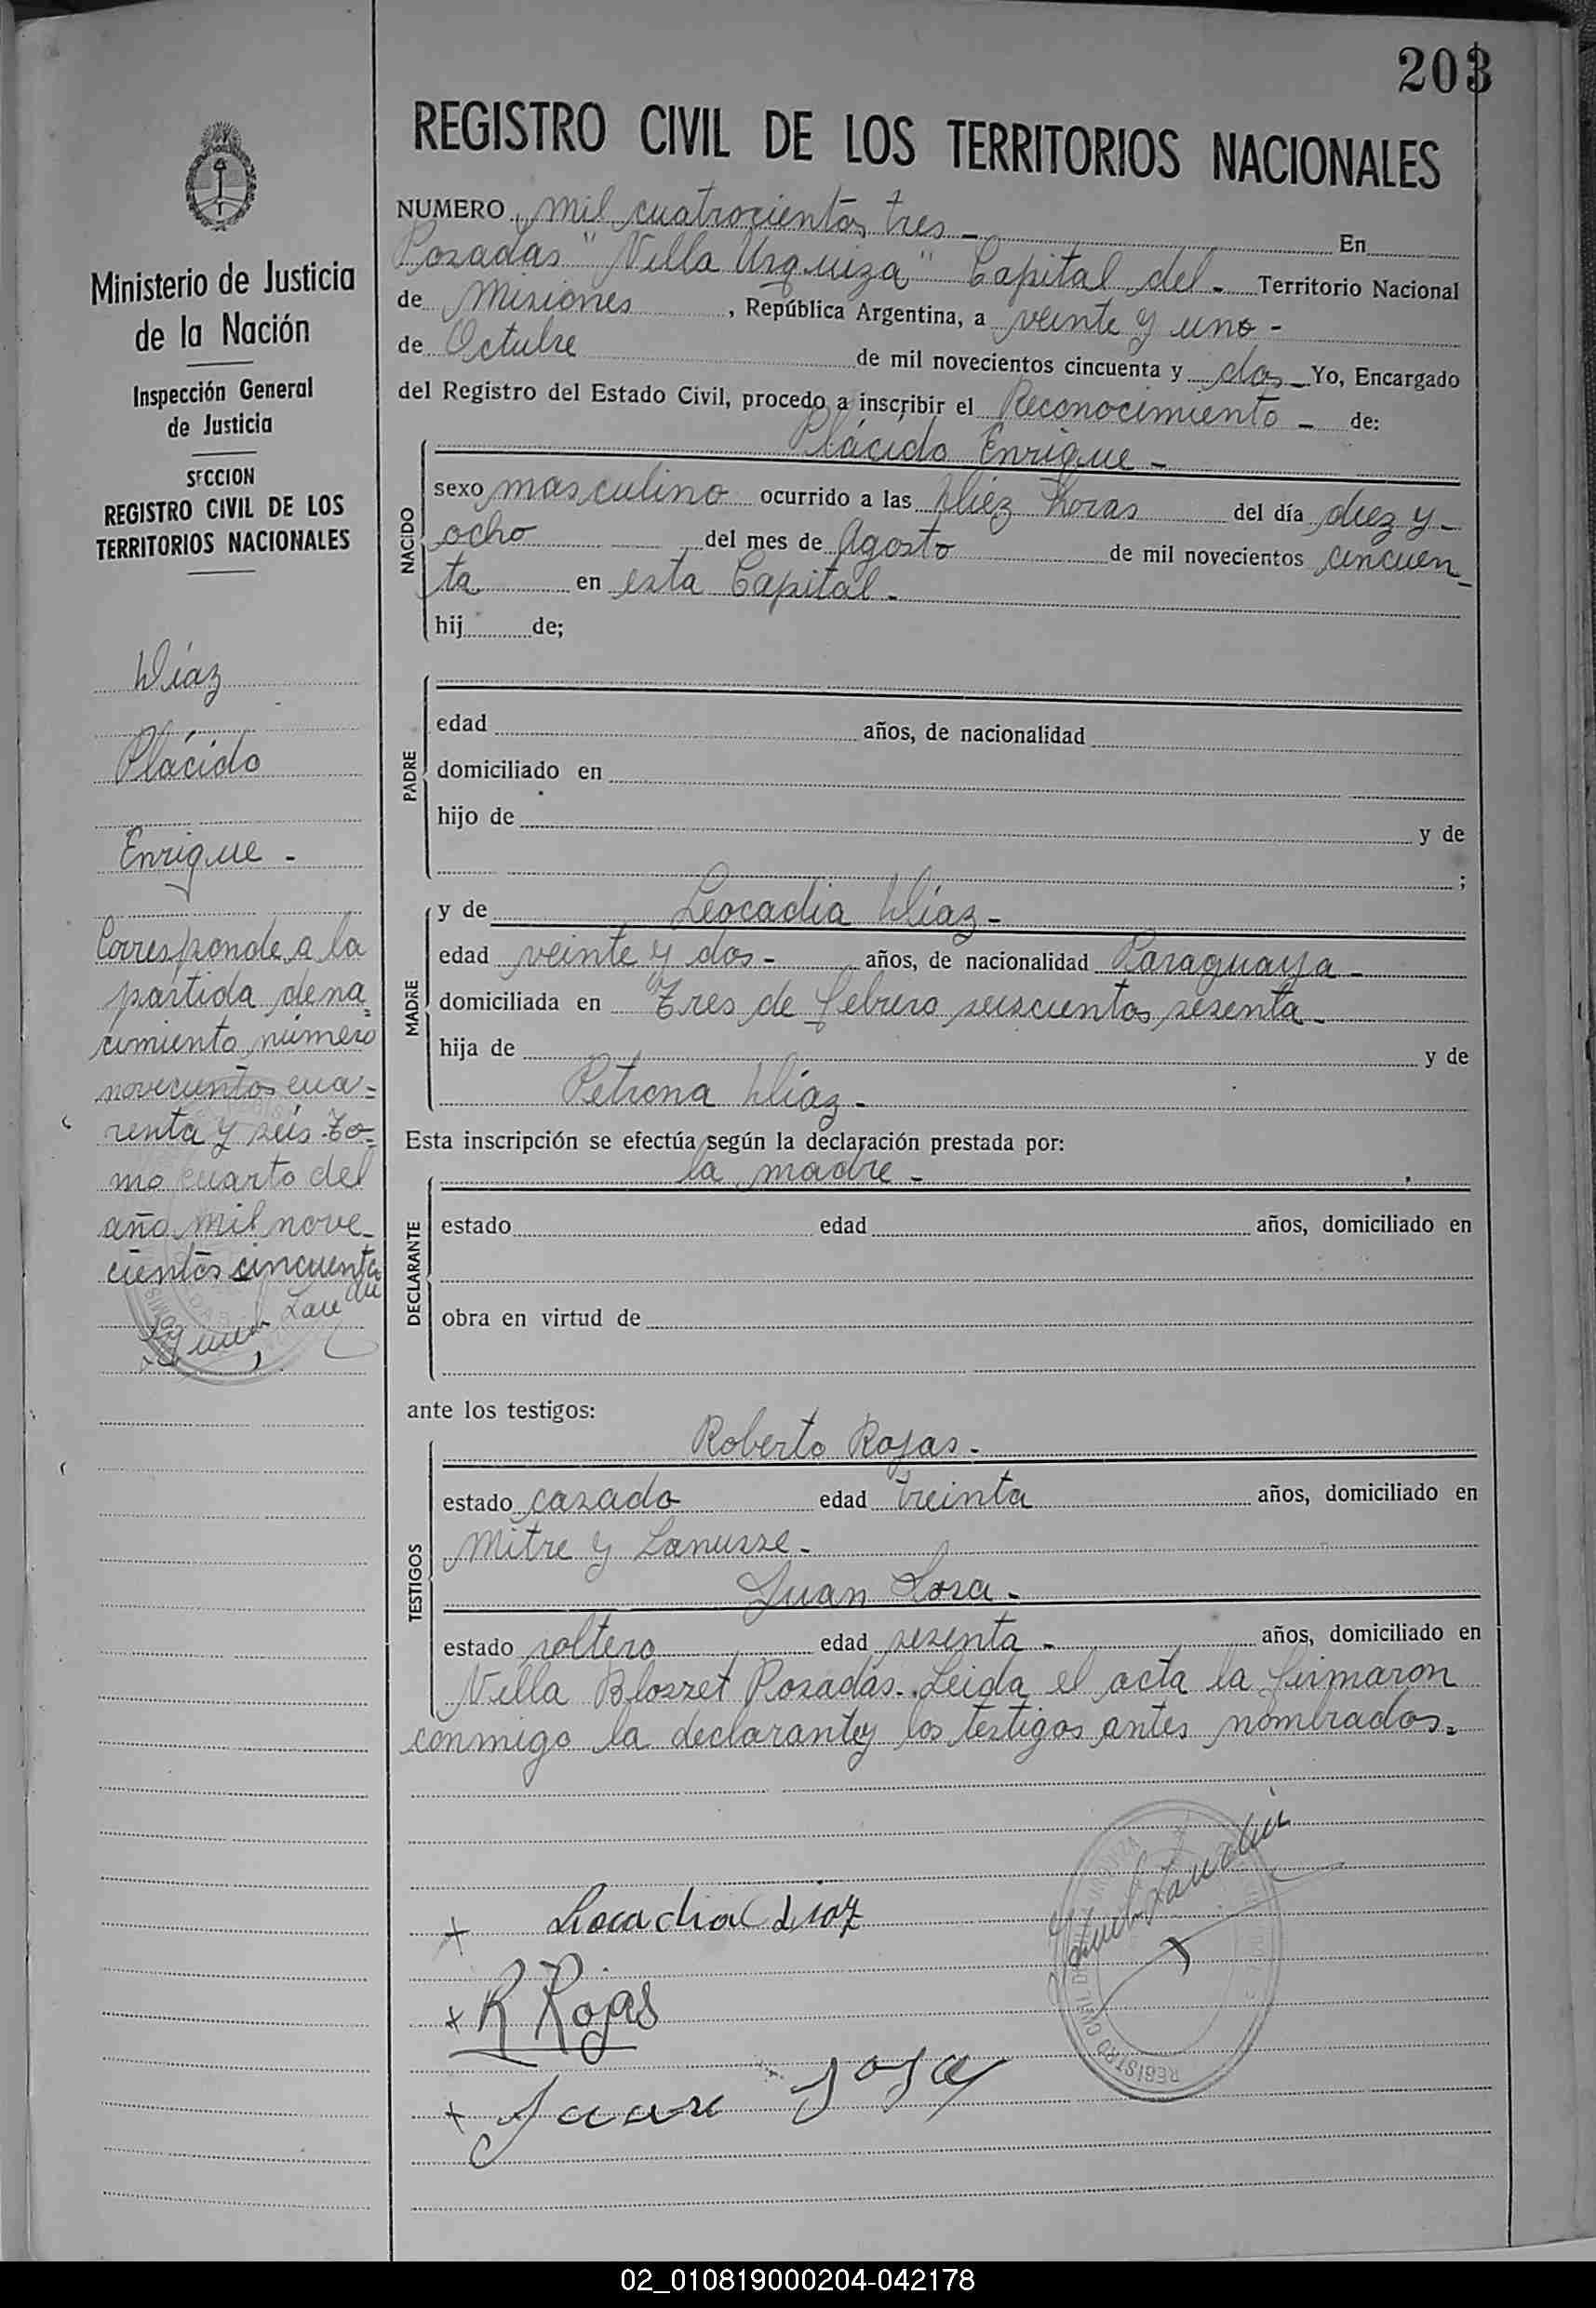 203
REGISTRO CIVIL DE LOS TERRITORIOS NACIONALES
NUMERO mil cuatrocientos tres - En
Posadas "Villa Urquiza" Capital del - Territorio Nacional
de Misiones, República Argentina, a veinte y uno -
de Octubre de mil novecientos cincuenta y dos - Yo, Encargado
del Registro del Estado Civil, procedo a inscribir el Reconocimiento - de:
Plácido Enrique -
NACIDO
sexo masculino ocurrido a las diez horas del día diez y -
ocho del mes de Agosto de mil novecientos cincuen_
ta en esta Capital -
hij de;
PADRE
edad años, de nacionalidad
domiciliado en
hijo de y de
;
MADRE
y de Leocadia Díaz -
edad veinte y dos - años, de nacionalidad Paraguaya -
domiciliada en Tres de febrero seiscientos sesenta -
hija de y de
Petrona Díaz -
Esta inscripción se efectúa según la declaración prestada por:
la madre -
DECLARANTE
estado edad años, domiciliado en
obra en virtud de
ante los testigos:
TESTIGOS
Roberto Rojas -
estado casado edad treinta años, domiciliado en
Mitre y Lanusse -
Juan Sosa -
estado soltero edad sesenta - años, domiciliado en
Villa Blosset Posadas. Leida el acta la firmaron
conmigo la declarante y los testigos antes nombrados =
x Liocadia Diaz
x R Rojas
x Juan Sosa
REGISTRO CIVIL
Ministerio de Justicia
de la Nación
Inspección General
de Justicia
SECCION
REGISTRO CIVIL DE LOS
TERRITORIOS NACIONALES
Díaz
Plácido
Enrique -
Corresponde a la
partida de na=
cimiento número
novecientos cua=
renta y seis To=
mo cuarto del
año mil nove_
cientos cincuenta
02_010819000204-042178